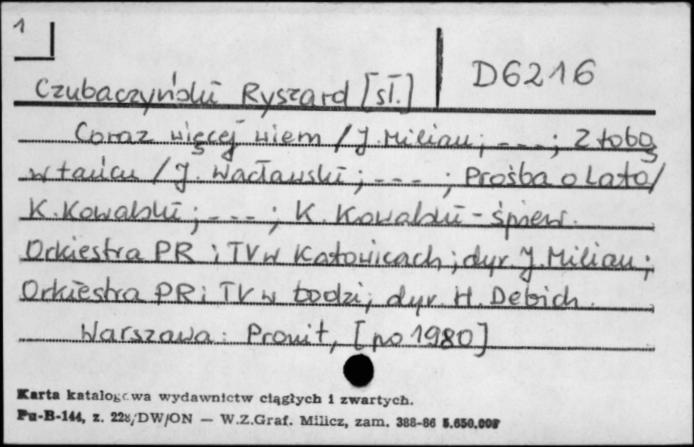 1
D6216
Czubaczyński Ryszard [sł.]
Coraz więcej wiem / J. Milian; ---; Z tobą
w tańcu / J. Wacławski; ---; Prośba o Lato /
K. Kowalski; ---; K. Kowalski - śpiew.
Orkiestra PR i TV w Katowicach; dyr. J. Milian;
Orkiestra PR i TV w Łodzi; dyr. H. Debich.
Warszawa: Pronit, [po 1980]
Karta katalogowa wydawnictw ciągłych i zwartych.
Pu-B-144, z. 228/DW/ON — W.Z.Graf. Milicz, zam. 388-86 5.650.000